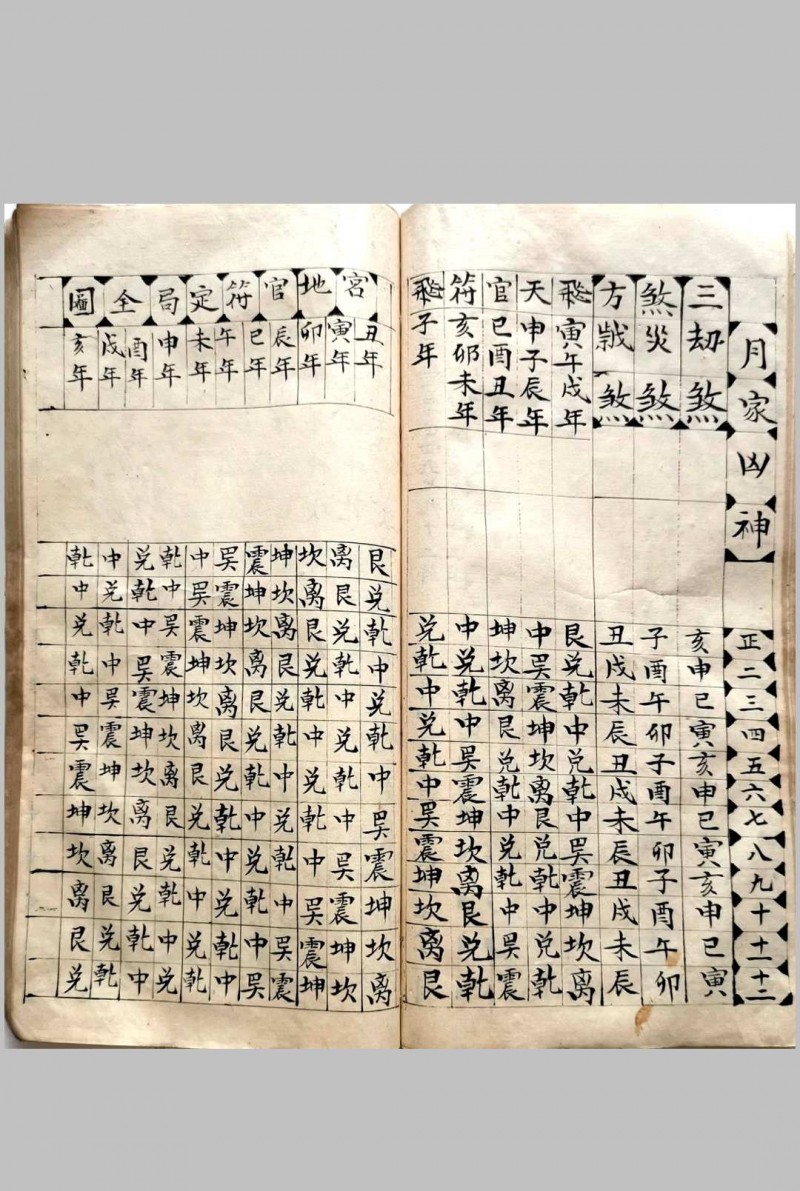 月家凶神正二三四五六七八九十十一十二
三劫煞亥申巳寅亥申巳寅亥申巳寅
煞災煞子酉午卯子酉午卯子酉午卯
方歲煞丑戌未辰丑戌未辰丑戌未辰
飛寅午戌年艮兑乾中兑乾中巽震坤坎离
天申子辰年中巽震坤坎离艮兑乾中兑乾
官巳酉丑年坤坎离艮兑乾中兑乾中巽震
符亥卯未年中兑乾中巽震坤坎离艮兑乾
飛子年兑乾中兑乾中巽震坤坎离艮
宮地官符定局全圖
丑年艮兑乾中兑乾中巽震坤坎离
寅年离艮兑乾中兑乾中巽震坤坎
卯年坎离艮兑乾中兑乾中巽震坤
辰年坤坎离艮兑乾中兑乾中巽震
巳年震坤坎离艮兑乾中兑乾中巽
午年巽震坤坎离艮兑乾中兑乾中
未年中巽震坤坎离艮兑乾中兑乾
申年乾中巽震坤坎离艮兑乾中兑
酉年兑乾中巽震坤坎离艮兑乾中
戌年中兑乾中巽震坤坎离艮兑乾
亥年乾中兑乾中巽震坤坎离艮兑